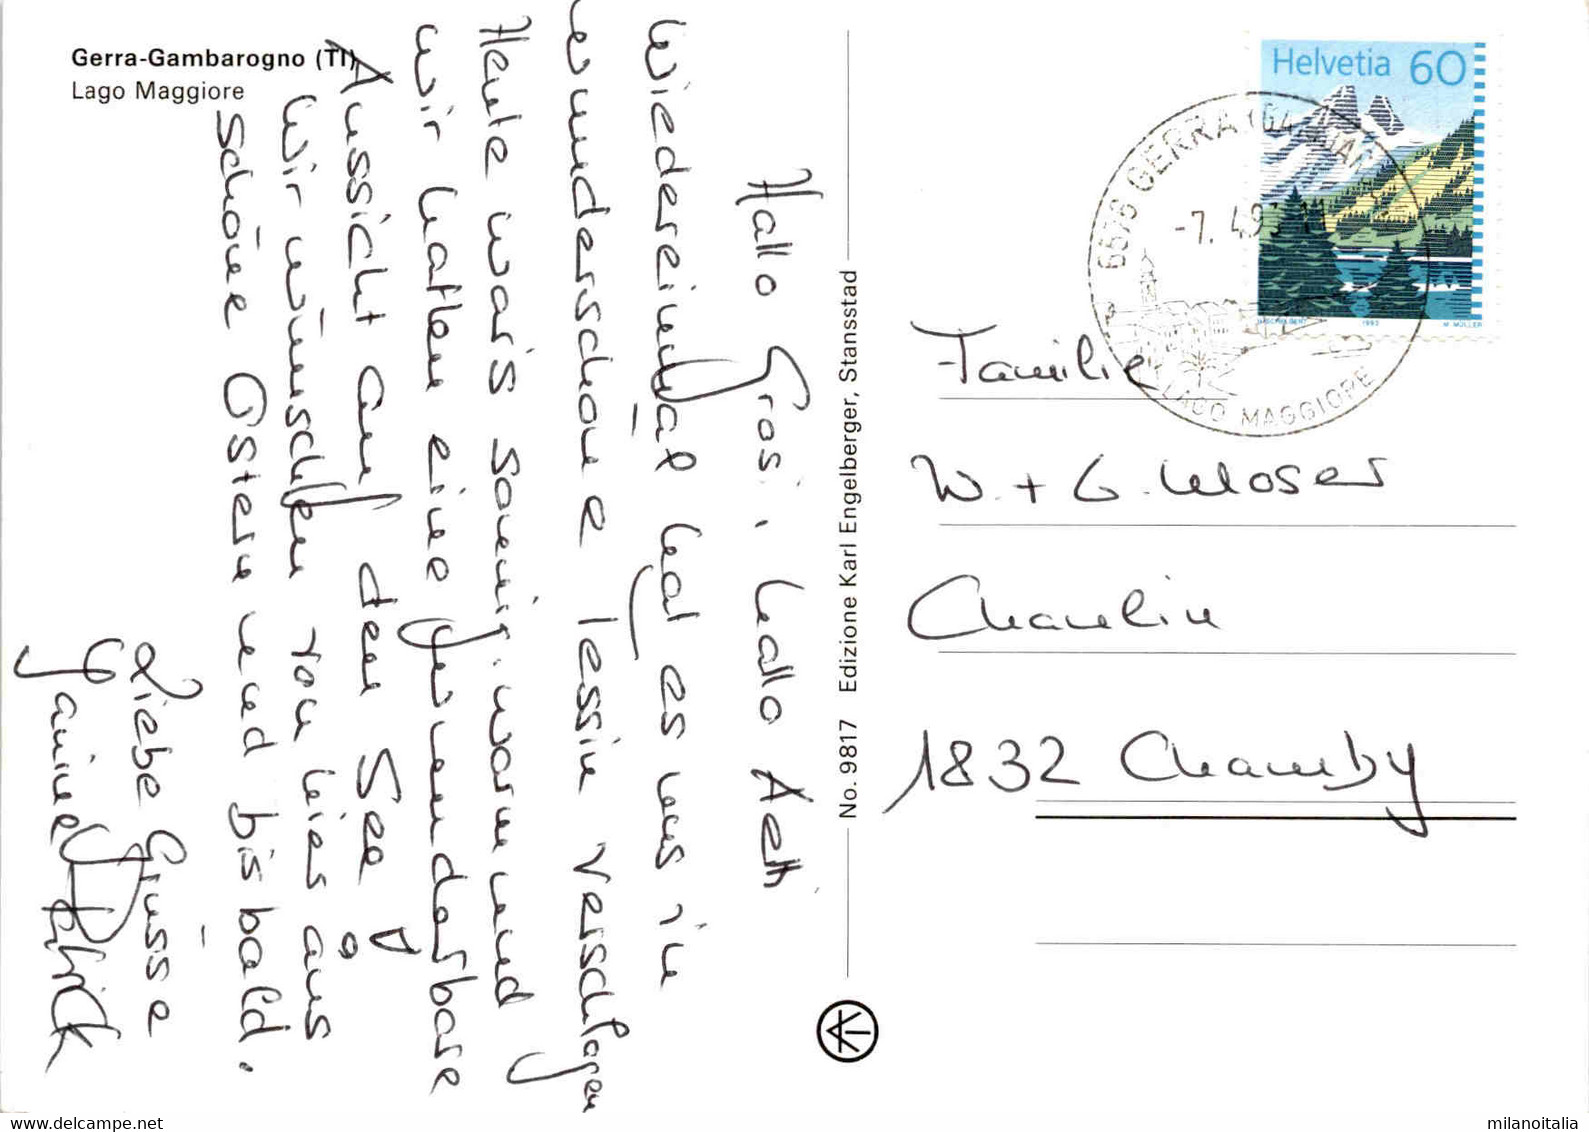 Gerra-Gambarogno (TI)
Lago Maggiore
Hallo Grosi, hallo Aetti
Wiedereinmal hat es uns in
wunderschöne Tessin verschlagen
Heute war's sonnig, warm und
wir hatten eine wunderbare
Aussicht auf den See!
Wir wünschen von hier aus
schöne Ostern und bis bald.
Liebe Grüsse
Janine Patrick
No. 9817 Edizione Karl Engelberger, Stansstad
Helvetia 60
1993
M. MÜLLER
6576 GERRA (GAMBAR
-7. 4.93 11
LAGO MAGGIORE
Familie
W. + G. Moser
Chamblin
1832 Chamby
milanoitalia